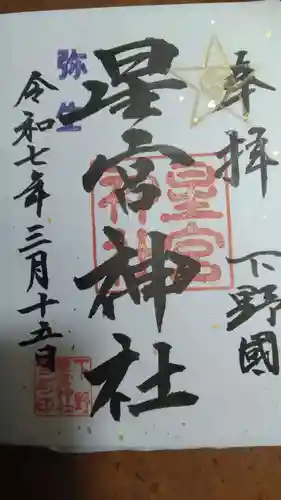 奉拝
下野國
星宮神社
弥生
令和七年三月十五日
星宮
神社